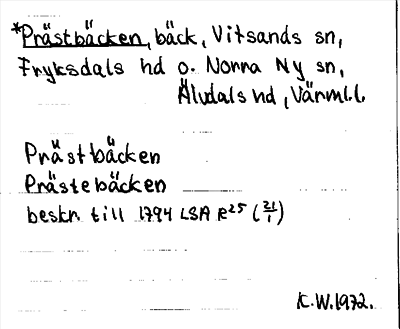 *Prästbäcken, bäck, Vitsands sn,
Fryksdals hd o. Norra Ny sn,
Älvdals hd, Värml.l.
Prästbäcken
Prästebäcken
beskr. till 1794 LSA R25 (21/1)
K.W.1972.